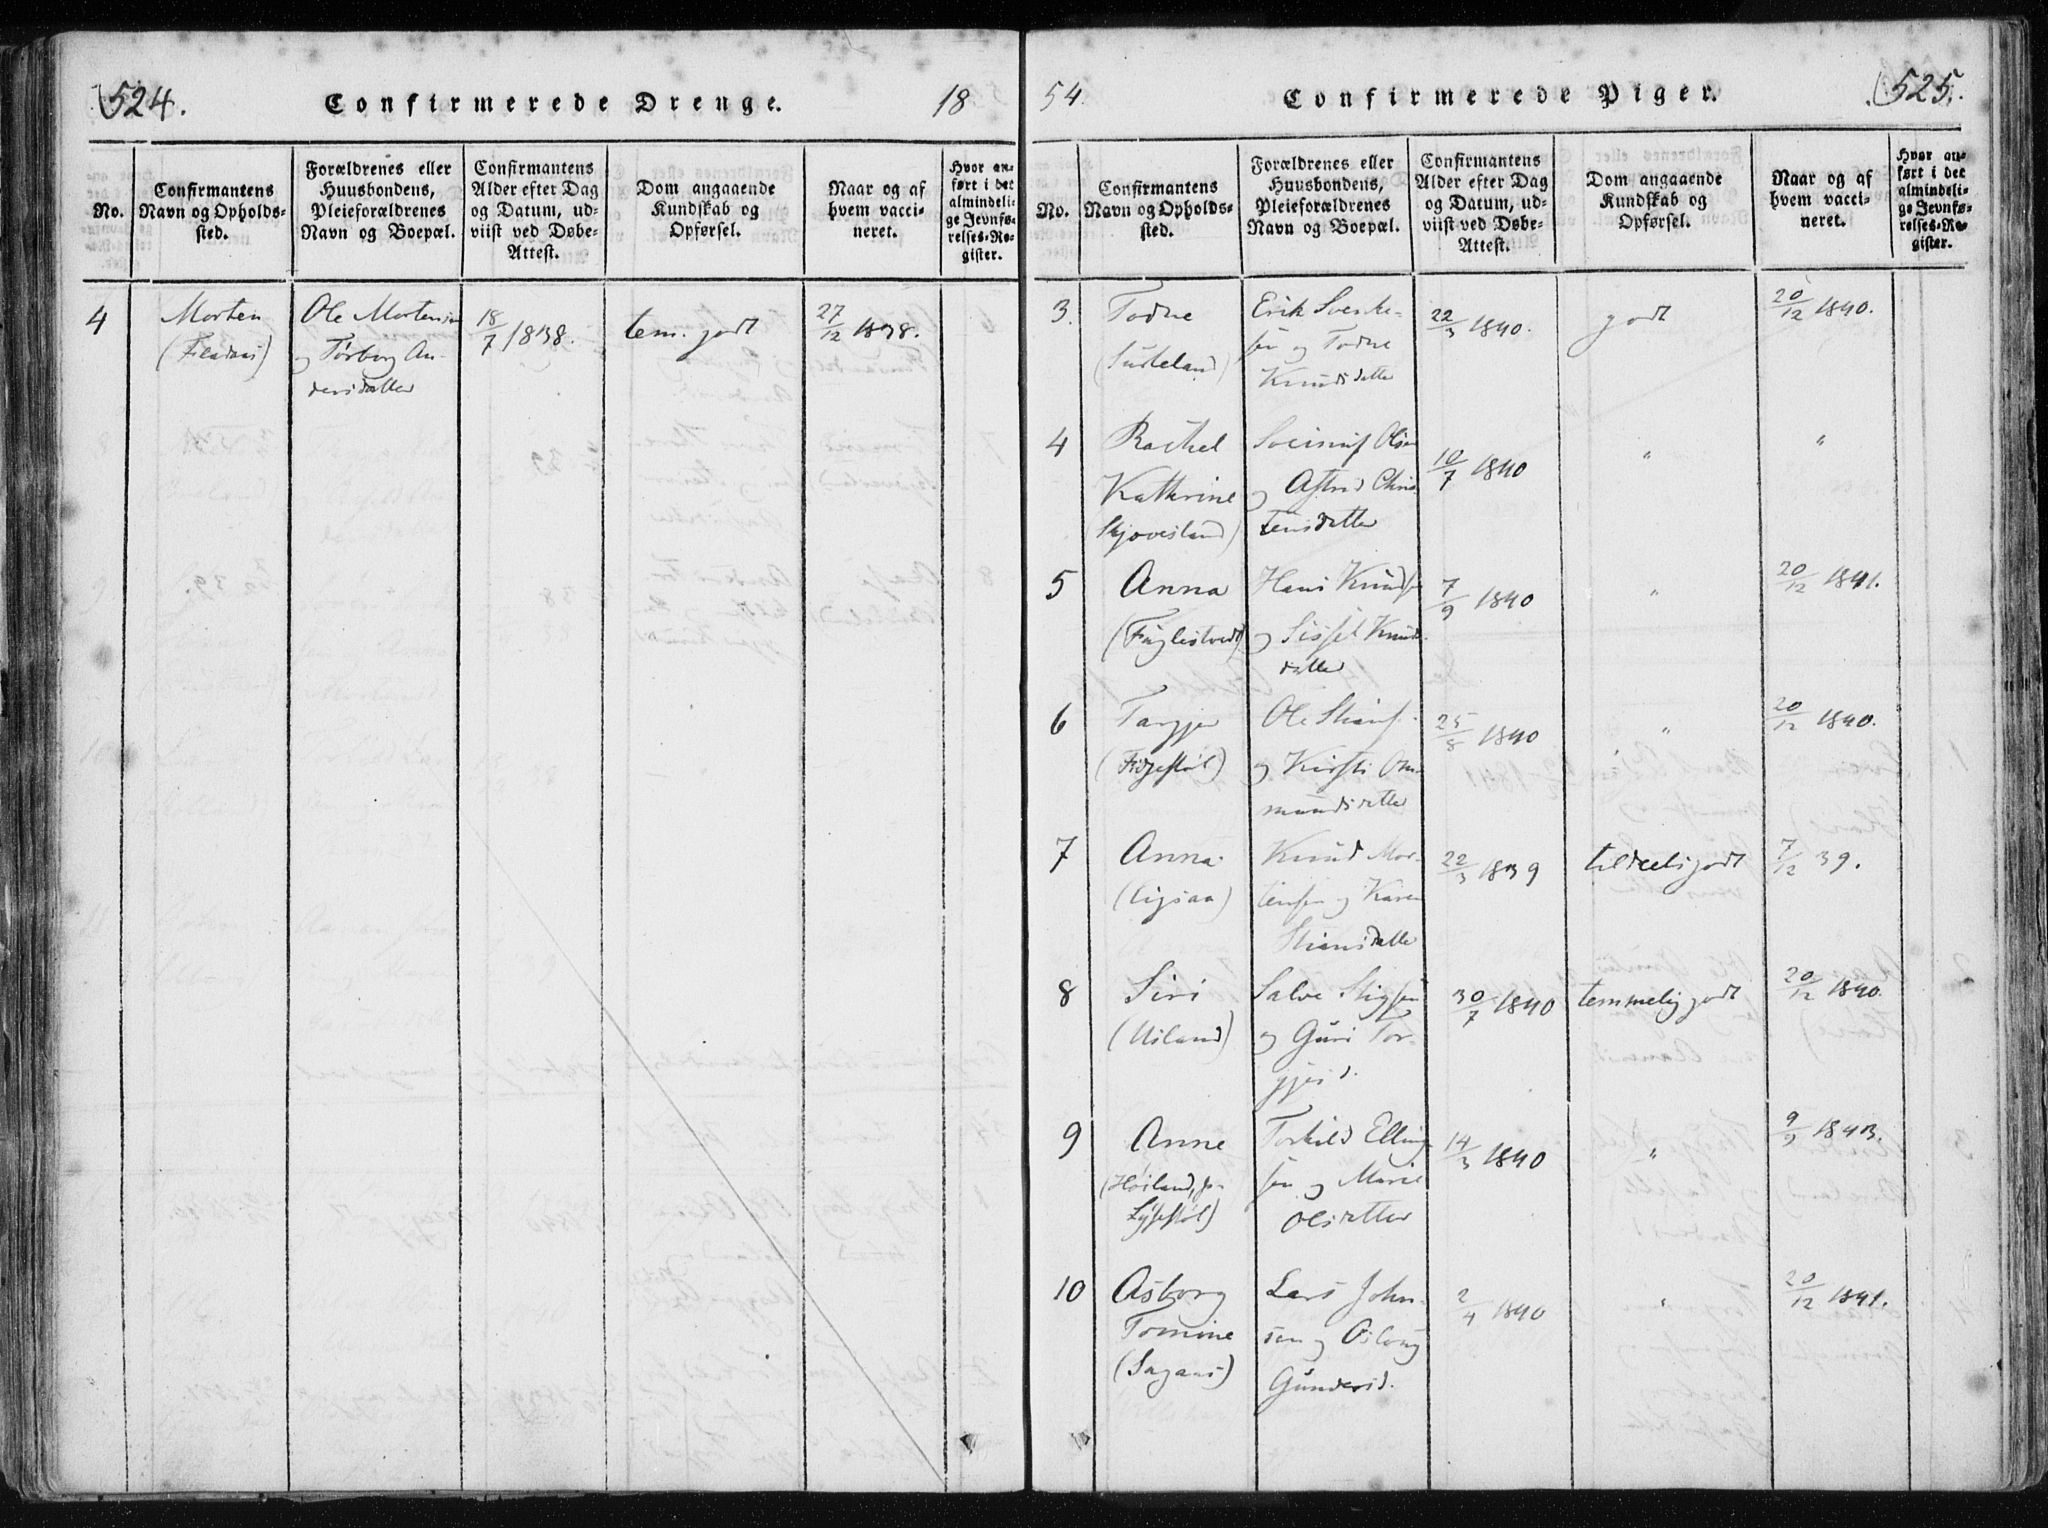 524.
Confirmerede Drenge.
18
No.
Confirmantens
Navn og Opholds-
sted.
Forældrenes eller
Huusbondens,
Pleieforældrenes
Navn og Boepæl.
Confirmantens
Alder efter Dag
og Datum, ud-
viist ved Døbe-
Attest.
Dom angaaende
Kundskab og
Opførsel.
Naar og af
hvem vacci-
neret.
Hvor an-
ført i det
almindeli-
ge Jevnfø-
relses-Re-
gister.
4
Morten
Ole Mortensen
og Tørborg An-
dersdatter
18/7 1838.
tem. godt
27/12 1838.
54.
Confirmerede Piger.
525.
No.
Confirmantens
Navn og Opholds-
sted.
Forældrenes eller
Huusbondens,
Pleieforældrenes
Navn og Boepæl.
Confirmantens
Alder efter Dag
og Datum, ud-
viist ved Døbe-
Attest.
Dom angaaende
Kundskab og
Opførsel.
Naar og af
hvem vacci-
neret.
Hvor an-
ført i det
almindeli-
ge Jevnfø-
relses-Re-
gister.
3.
Todne
Erik Svenke-
sen og Todne
Knudsdatter
22/3 1840.
godt
20/12 1840.
4
Rachel
Kathrine
(Skjovesland)
Olsen
og Astrid Chris
tensdatter
10/7 1840
"
"
5
Anna
(Fuglestvedt)
Hans Knuds
og Sissel Knuds
datter
7/9 1840
"
20/12 1841.
6
Targjer
Ole
og Kirsti Om-
mundsdatter
25/8 1840
"
20/12 1840.
7
Anna
(Ligsaa)
Knud Mor-
tensen og Karen
Stiansdatter
22/3 1839
tildeels godt
7/12 39.
8
Siri
(Uiland)
Salve Stigsen
og Guri Tor-
gjesd.
30/7 1840
temmelig godt
20/12 1840.
9
Anne
(Høiland, p.
Lysestøl)
Torkild Elling
sen og Marie
Olsdatter
14/3 1840
"
9/9 1843.
10
Asborg
Tomine
(Sagani)
Lars John-
sen og Asloug
Gundersd.
2/4 1840
"
20/12 1841.